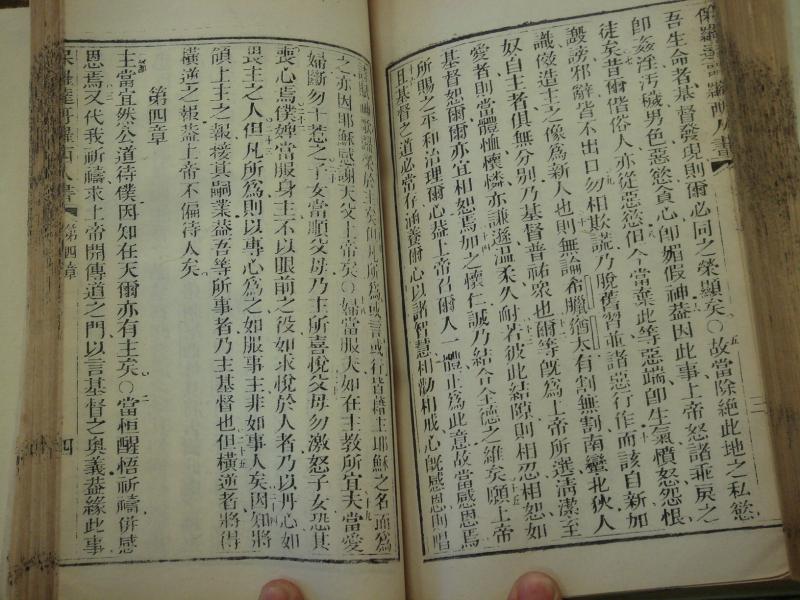 保羅達哥羅西人書
三
吾生命者基督發現則爾必同之榮顯矣○故當除絕此地之私慾
卽姦淫汚穢男色惡慾貪心卽媚假神葢因此事上帝怒諸乖戾之
徒矣昔爾偕俗人亦從惡慾但今當棄此等惡端卽生氣憤怒怨恨
謗邪辭皆不出口勿相欺謊乃脫舊習並諸惡行作而該自新加
識傚造主之像爲新人也則無論希臘猶太有割無割南蠻北狄人
奴自主者俱無分別乃基督普祐眾也爾等旣爲上帝所選清潔至
愛者則當體恤懷憐亦謙遜温柔久耐若彼此結隙則相忍相恕如
基督恕爾爾亦宜相恕焉加之懷仁誠乃結合全德之維矣願上帝
所賜之平和治理爾心葢上帝召爾人一體正爲此意故當感恩焉
且基督之道必常存涵養爾心以諸智慧相勸相戒心旣感恩則唱
於主矣但凡所爲或言或行皆藉主耶穌之名而爲
之亦因耶穌感謝天父上帝矣○婦當服夫如在主教所宜夫當愛
婦斷勿十惹之子女當順父母乃主所喜悅父母勿激怒子女恐其
喪心焉僕婢當服身主不以眼前之役如求悅於人者乃以丹心如
畏主之人但凡所爲則以專心爲之如服事主非如事人矣因知將
領上主之報接其嗣業葢吾等所事者乃主基督也但橫逆者將得
橫逆之報葢上帝不偏待人矣
第四章
主當宜然公道待僕因知在天爾亦有主矣○當恒醒悟祈禱併感
恩焉又代我祈禱求上帝開傳道之門以言基督之奧義葢緣此事
保羅達哥羅西人書
第四章
四